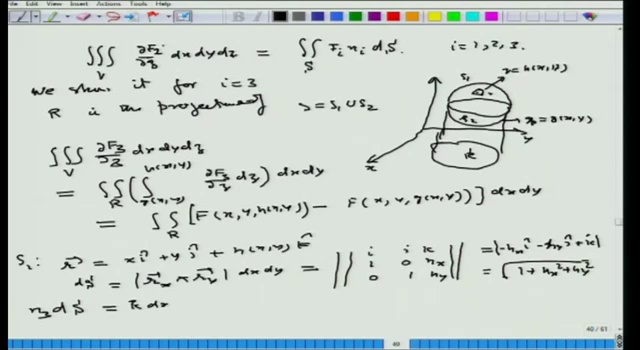 Edit View Insert Actions Tools Help
∭_V ∂F_i/∂z dx dy dz = ∬_S F_i n_i dS. i = 1, 2, 3.
We show it for i=3
R is the projection of S = S_1 ∪ S_2
S_1 z=h(x,y)
S_2 z = g(x,y)
y
x
R
∭_V ∂F_3/∂z dx dy dz
= ∬_R (∫_{g(x,y)}^{h(x,y)} ∂F_3/∂z dz) dx dy
= ∬_R [F(x, y, h(x,y)) - F(x, y, g(x,y))] dx dy
S_1: r⃗ = x î + y ĵ + h(x,y) k̂
dS = |r⃗_x × r⃗_y| dx dy = || i j k 1 0 h_x 0 1 h_y || = |-h_x î - h_y ĵ + k̂|
= √(1 + h_x² + h_y²)
n_3 dS = k dx
40 / 61